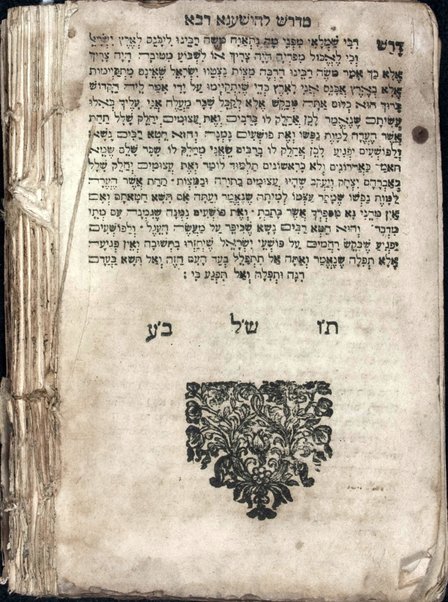 מדרש להושענא רבא
דרש רבי שמלאי מפני מה נתאוה משה רבינו ליכנס לארץ ישראל
וכי לאכול מפריה היה צריך או לשבוע מטובה היה צריך
אלא כך אמר משה רבינו הרבה מצות נצטוו ישראל שאינם מתקיימות
אלא בארץ אכנס אני לארץ כדי שיתקיימו על ידי אמר ליה הקדוש
ברוך הוא כלום אתה מבקש אלא לקבל שכר מעלה אני עליך כאלו
עשיתם שנאמר לכן אחלק לו ברבים ואת עצומים יחלק שלל תחת
אשר הערה למות נפשו ואת פושעים נמנה והוא חטא רבים נשא
ולפושעים יפגיע לכן אחלק לו ברבים שאני מחלק לו שכר שלם שמא
תאמר כאחרונים ולא כראשונים תלמוד לומר ואת עצומים יחלק שלל
כאברהם יצחק ויעקב שהיו עצומים בתורה ובמצות תחת אשר הערה
למות נפשו שמסר עצמו למיתה שנאמר ועתה אם תשא חטאתם ואם
אין מחני נא מספרך אשר כתבת ואת פושעים נמנה שנמנה עם מתי
מדבר והוא חטא רבים נשא שכיפר על מעשה העגל ולפושעים
יפגיע שבקש רחמים על פושעי ישראל שיחזרו בתשובה ואין פגיעה
אלא תפלה שנאמר ואתה אל תתפלל בעד העם הזה ואל תשא בעדם
רנה ותפלה ואל תפגע בי :
תו שׁל בע